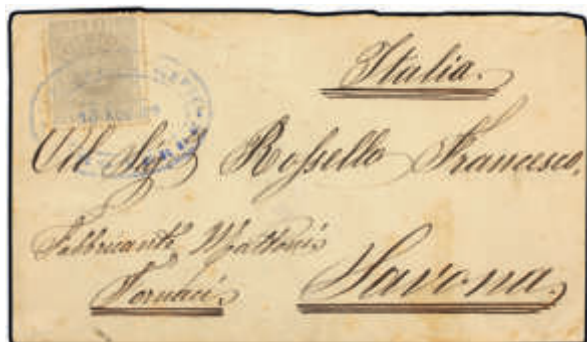 Italia.
Al Sig. Rossello Francesco,
Fabbricante Mattoni
Fornaci. Savona.